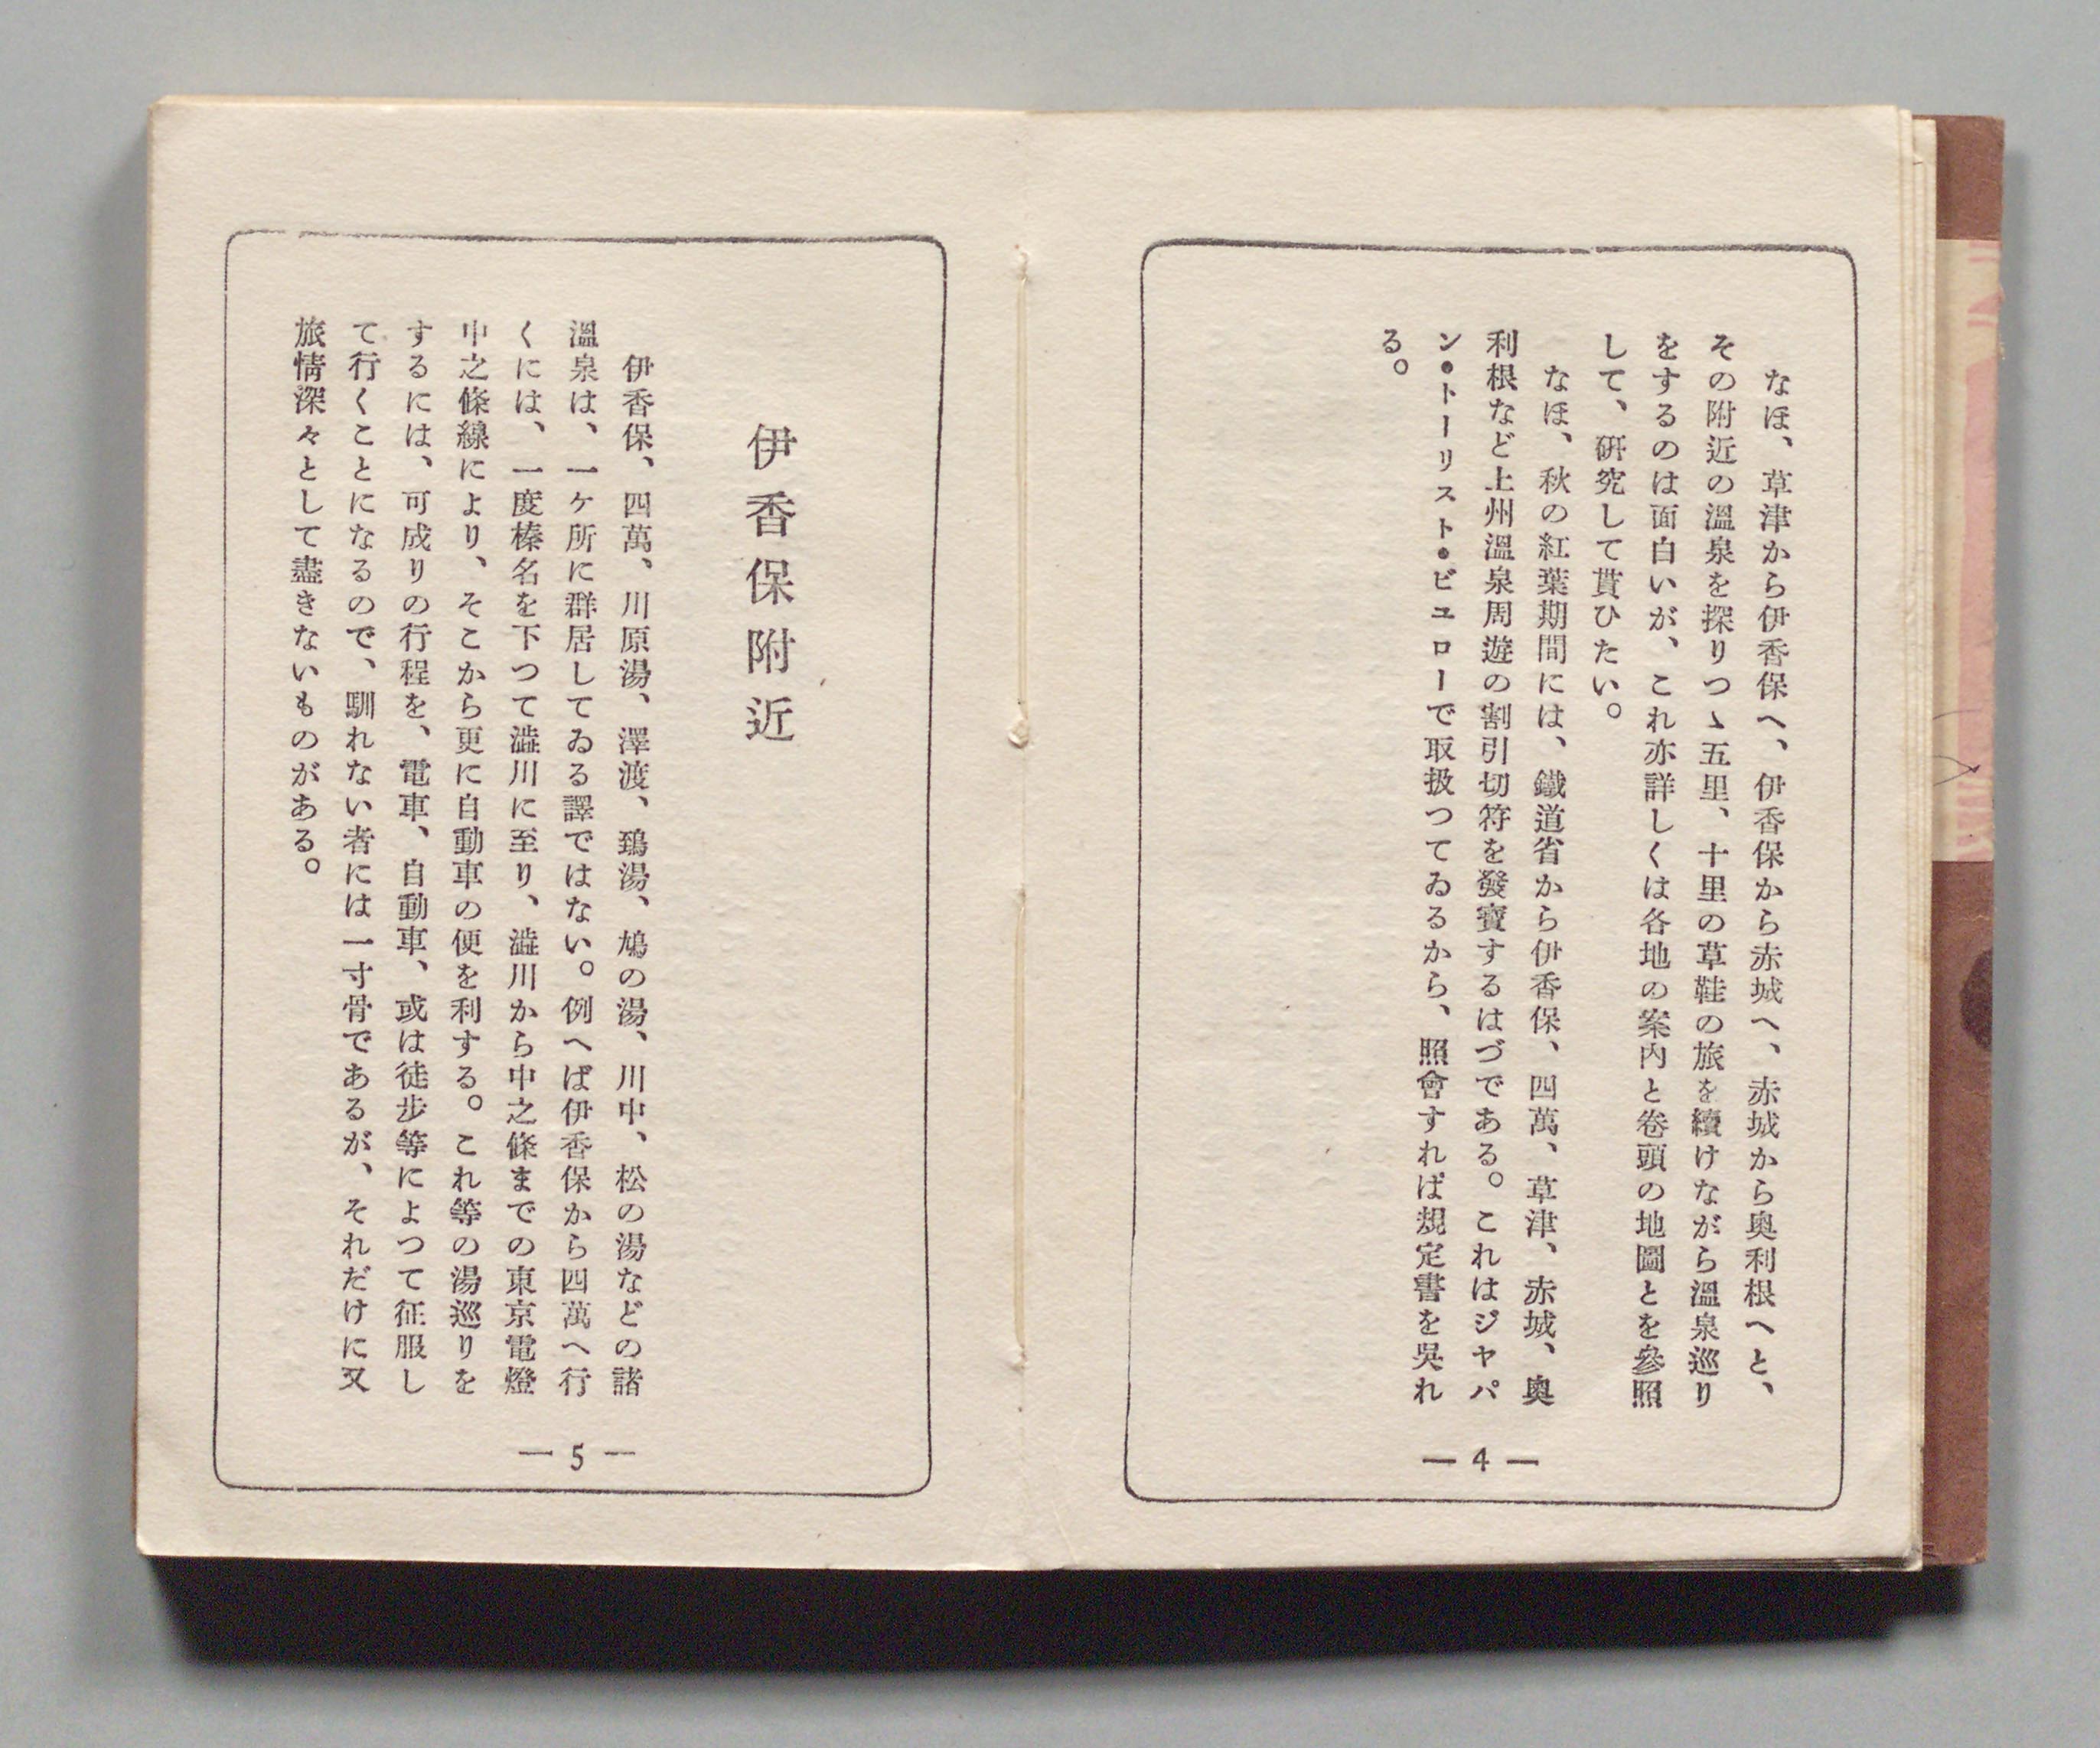 なほ、草津から伊香保へ、伊香保から赤城へ、赤城から奥利根へと、
その附近の溫泉を探りつゝ五里、十里の草鞋の旅を續けながら溫泉巡り
をするのは面白いが、これ亦詳しくは各地の案內と卷頭の地圖とを參照
して、硏究して貰ひたい。
なほ、秋の紅葉期間には、鐵道省から伊香保、四萬、草津、赤城、奥
利根など上州溫泉周遊の割引切符を發賣するはづである。これはジヤパ
ン•トーリスト•ビユローで取扱つてゐるから、照會すれば規定書を吳れ
る。
— 4 —
伊香保附近
伊香保、四萬、川原湯、澤渡、鵄湯、鳩の湯、川中、松の湯などの諸
溫泉は、一ケ所に群居してゐる譯ではない。例へば伊香保から四萬へ行
くには、一度榛名を下つて澁川に至り、澁川から中之條までの東京電燈
中之條線により、そこから更に自動車の便を利する。これ等の湯巡りを
するには、可成りの行程を、電車、自動車、或は徒步等によつて征服し
て行くことになるので、馴れない者には一寸骨であるが、それだけに又
旅情深々として盡きないものがある。
— 5 —